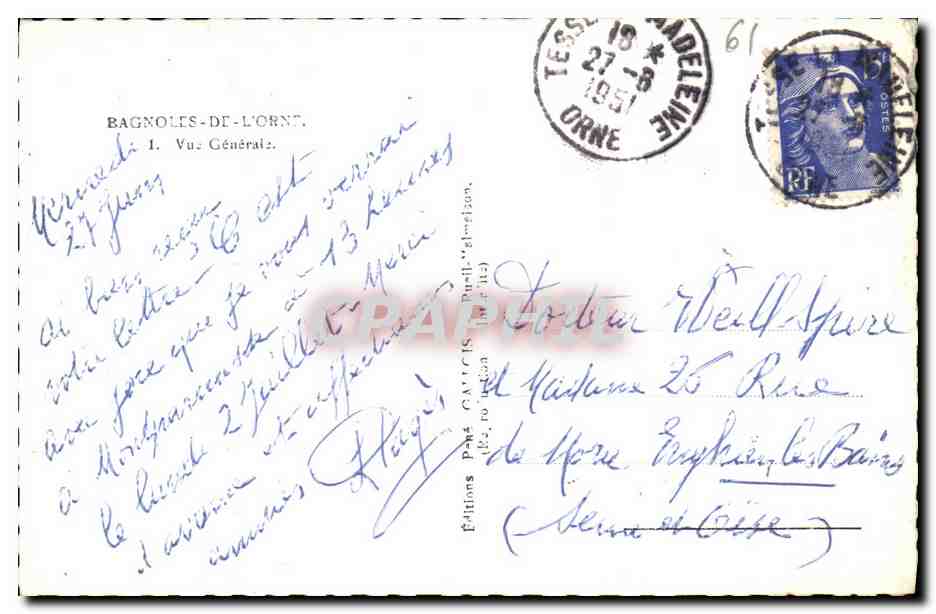 BAGNOLES-DE-L'ORNE.
1. Vue Générale.
Mercredi
27 Juin
ai bien reçu
votre lettre - C'est
avec joie que je vous verrai
à Montparnasse à 13 heures
le lundi 2 Juillet - Merci
d'avance et affectueuses
amitiés
Editions René GALLOIS Rueil-Malmaison.
TESSE MADELEINE
18 *
27-6
1951
ORNE
61
15F
POSTES
RF
Docteur Weill Spire
et Madame 26 Rue
de Mora Enghien les Bains
(Seine et Oise)
CPAPHIL